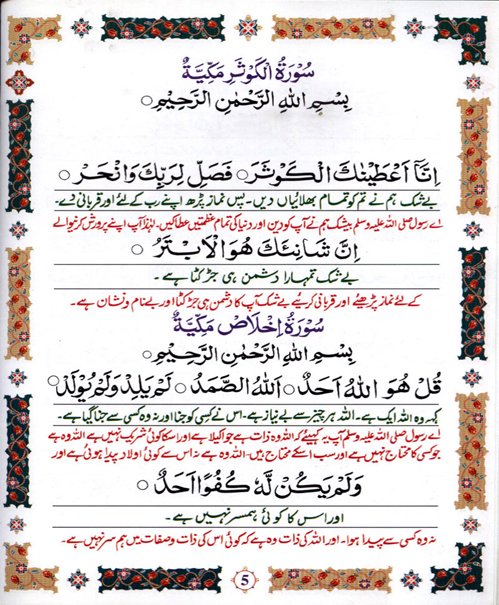 سُوْرَةُ الْكَوْثَرِ مَكِّيَّةٌ
بِسْمِ اللهِ الرَّحْمٰنِ الرَّحِيْمِ ○
اِنَّآ اَعْطَيْنٰكَ الْكَوْثَرَ ○ فَصَلِّ لِرَبِّكَ وَانْحَرْ ○
بے شک ہم نے تم کو تمام بھلائیاں دیں۔ پس نماز پڑھ اپنے رب کے لئے اور قربانی دے۔
اے رسول صلی اللہ علیہ وسلم بیشک ہم نے آپ کو دین اور دنیا کی تمام عظمتیں عطا کیں۔ لہٰذا آپ اپنے پرورش کرنیوالے
اِنَّ شَانِئَكَ هُوَ الْاَبْتَرُ ○
بے شک تمہارا دشمن ہی جڑ کٹا ہے۔
کے لئے نماز پڑھیئے اور قربانی کریئے بے شک آپ کا دشمن ہی جڑ کٹا اور بے نام و نشان ہے۔
سُوْرَةُ اِخْلَاصْ مَكِّيَّةٌ
بِسْمِ اللهِ الرَّحْمٰنِ الرَّحِيْمِ ○
قُلْ هُوَ اللهُ اَحَدٌ ○ اَللهُ الصَّمَدُ ○ لَمْ يَلِدْ وَلَمْ يُوْلَدْ ○
کہہ وہ اللہ ایک ہے۔ اللہ ہر چیز سے بے نیاز ہے۔ اس نے کسی کو جنا اور نہ وہ کسی سے جنا گیا ہے۔
اے رسول صلی اللہ علیہ وسلم آپ یہ کہیئے کہ اللہ وہ ذات ہے جو اکیلا ہے اور اسکا کوئی شریک نہیں ہے اللہ وہ ہے
جو کسی کا محتاج نہیں ہے اور سب اسکے محتاج ہیں۔ اللہ وہ ہے نہ اس سے کوئی اولاد پیدا ہوئی ہے اور
وَلَمْ يَكُنْ لَّهٗ كُفُوًا اَحَدٌ ○
اور اس کا کوئی ہمسر نہیں ہے۔
نہ وہ کسی سے پیدا ہوا۔ اور اللہ کی ذات وہ ہے کہ کوئی اس کی ذات و صفات میں ہم سر نہیں ہے۔
5